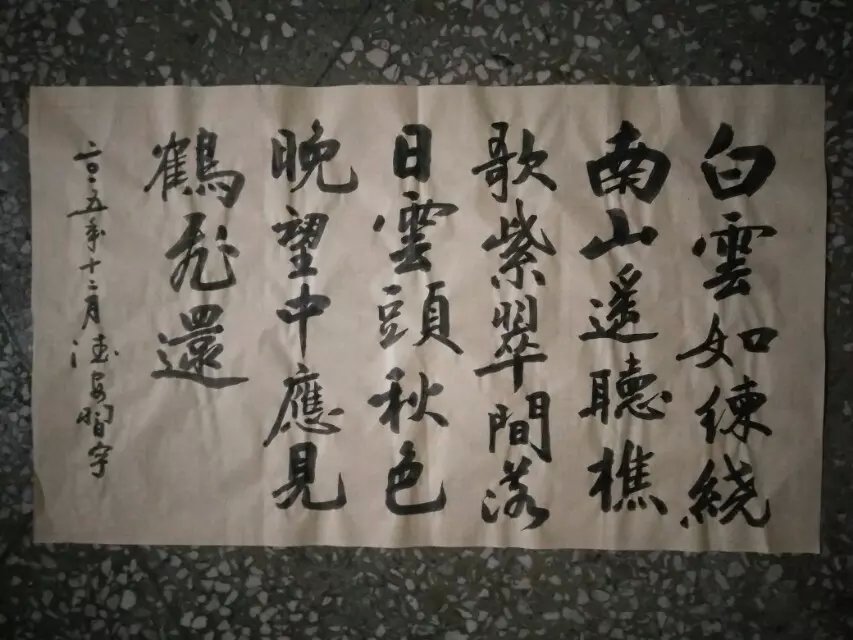 白雲如練繞
南山遥聽樵
歌紫翠間落
日雲頭秋色
晚望中應見
鶴飛還
二〇一五年十二月德安習字